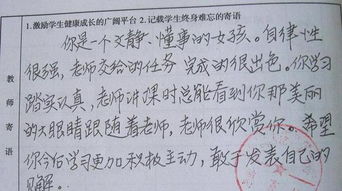 1.激励学生健康成长的广阔平台 2.记载学生终身难忘的寄语
教师寄语
你是一个文静、懂事的女孩。自律性
很强,老师交给的任务完成的很出色。你学习
踏实认真,老师讲课时总能看到你那美丽
的大眼睛跟随着老师,老师很欣赏你。希望
你今后学习更加积极主动,敢于发表自己的
见解。